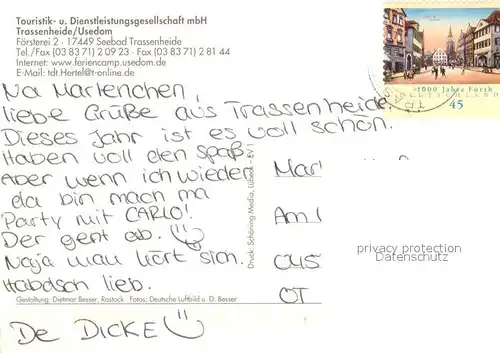 Touristik- u. Dienstleistungsgesellschaft mbH
Trassenheide/Usedom
Försterei 2 · 17449 Seebad Trassenheide
Tel./Fax (03 83 71) 2 09 23 · Fax (03 83 71) 2 81 44
Internet: www.feriencamp.usedom.de
E-Mail: tdt.Hertel@t-online.de
1000 Jahre Fürth
DEUTSCHLAND
45
Na Martenchen,
liebe Grüße aus Trassenheide.
Dieses Jahr ist es voll schön.
Haben voll den Spaß
Aber wenn ich wieder
da bin mach ma
Party mit CARLO!
Der gent ab.
Naja man hört sich.
Habdsch lieb.
De DICKE
Mar
Am
OT
privacy protection
Datenschutz
Druck: Schöning Media, Lübeck
Gestaltung: Dietmar Besser, Rostock Fotos: Deutsche Luftbild u. D. Besser